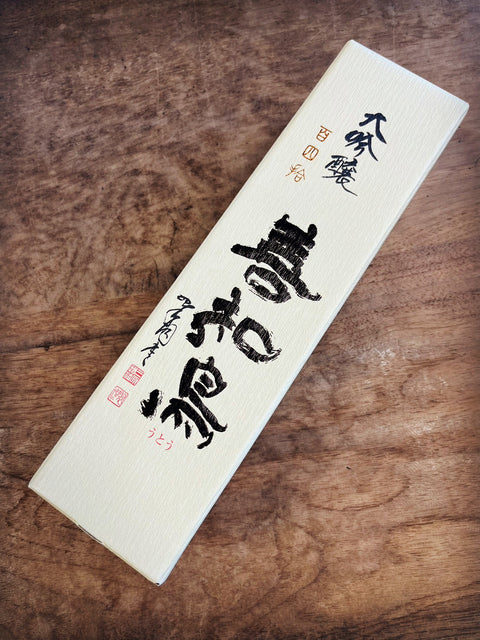 大吟醸
百四拾
善知鳥
うとう